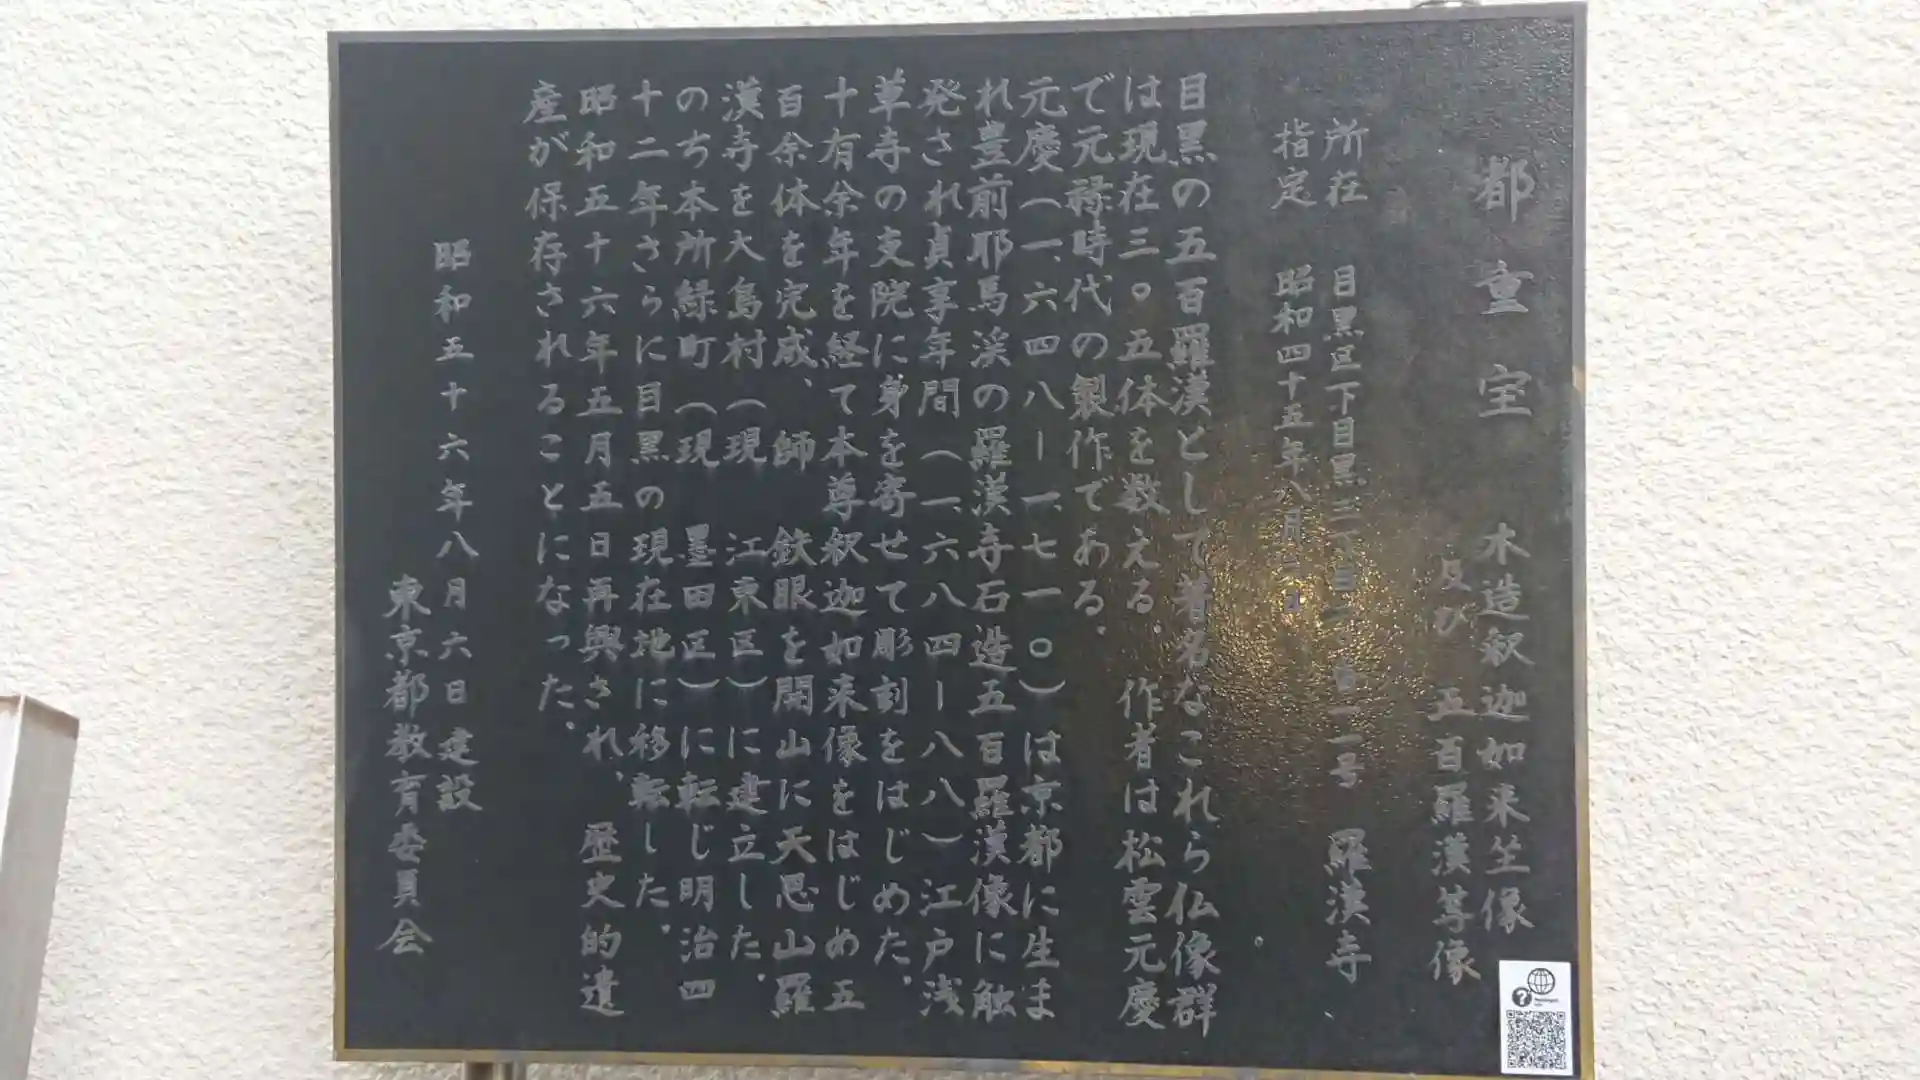 都重宝　木造釈迦如来坐像
及び　五百羅漢等像
所在　目黒区下目黒三丁目二〇番一一号　羅漢寺
指定　昭和四十五年八月
目黒の五百羅漢として著名なこれら仏像群
は現在三〇五体を数える．作者は松雲元慶
で元禄時代の製作である．
元慶（一、六四八ー一、七一〇）は京都に生ま
れ豊前耶馬渓の羅漢寺石造五百羅漢像に触
発され貞享年間（一、六八四ー八八）江戸浅
草寺の支院に身を寄せて彫刻をはじめた．
十有余年を経て本尊釈迦如来像をはじめ五
百余体を完成、師　鉄眼を開山に天恩山羅
漢寺を大島村（現　江東区）に建立した．
のち本所緑町（現　墨田区）に転じ明治四
十二年さらに目黒の現在地に移転した．
昭和五十六年五月五日再興され、歴史的遺
産が保存されることになった．
昭和五十六年八月六日建設
東京都教育委員会